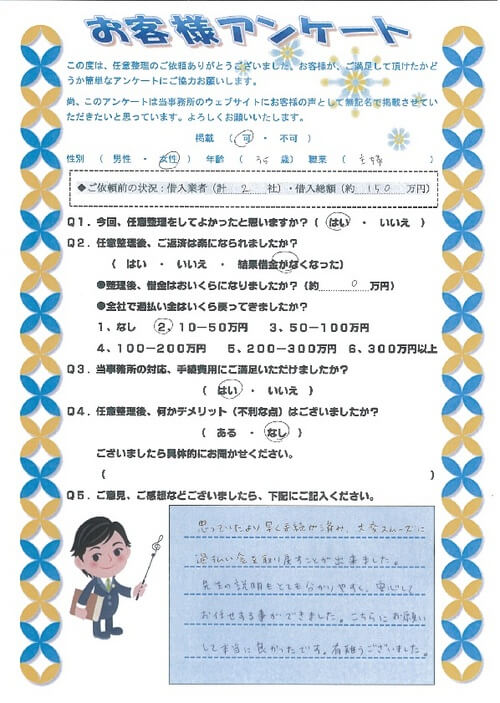 お客様アンケート
この度は、任意整理のご依頼ありがとうございました。お客様が、ご満足して頂けたかど
うか簡単なアンケートにご協力お願いします。
尚、このアンケートは当事務所のウェブサイトにお客様の声として無記名で掲載させてい
ただきたいと思っています。よろしくお願いいたします。
掲載 ( 可 ・ 不可 )
性別 ( 男性 ・ 女性 ) 年齢 ( 歳 ) 職業 ( 主婦 )
◆ご依頼前の状況:借入業者(計 2 社)・借入総額(約 150 万円)
Q1.今回、任意整理をしてよかったと思いますか?( はい ・ いいえ )
Q2.任意整理後、ご返済は楽になられましたか?
( はい ・ いいえ ・ 結果借金がなくなった)
●整理後、借金はおいくらになりましたか?(約 0 万円)
●全社で過払い金はいくら戻ってきますか?
1、なし 2、10-50万円 3、50-100万円
4、100-200万円 5、200-300万円 6、300万円以上
Q3.当事務所の対応、手続費用にご満足いただけましたか?
( はい ・ いいえ )
Q4.任意整理後、何かデメリット(不利な点)はございましたか?
( ある ・ なし )
ございましたら具体的にお聞かせください。
( )
Q5.ご意見、ご感想などございましたら、下記にご記入ください。
思っていたより早く手続が済み、大変スムーズに
過払い金を取り戻すことが出来ました。
先生の説明もとても分かりやすく、安心して
お任せする事ができました。こちらにお願い
して本当に良かったです。有難うございました。